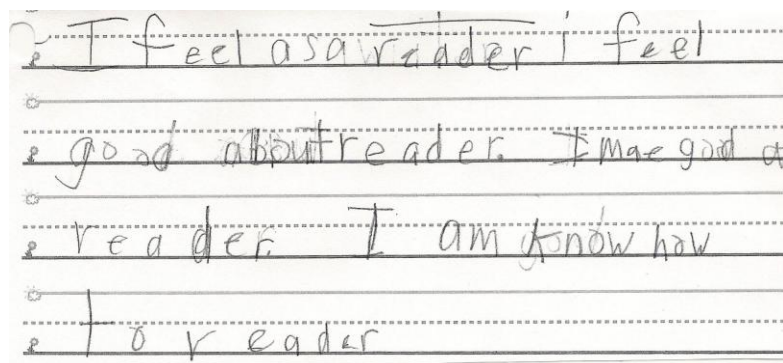 I feel as a readder i feel
good about reader. I mae good at
reader. I am know how
to reader